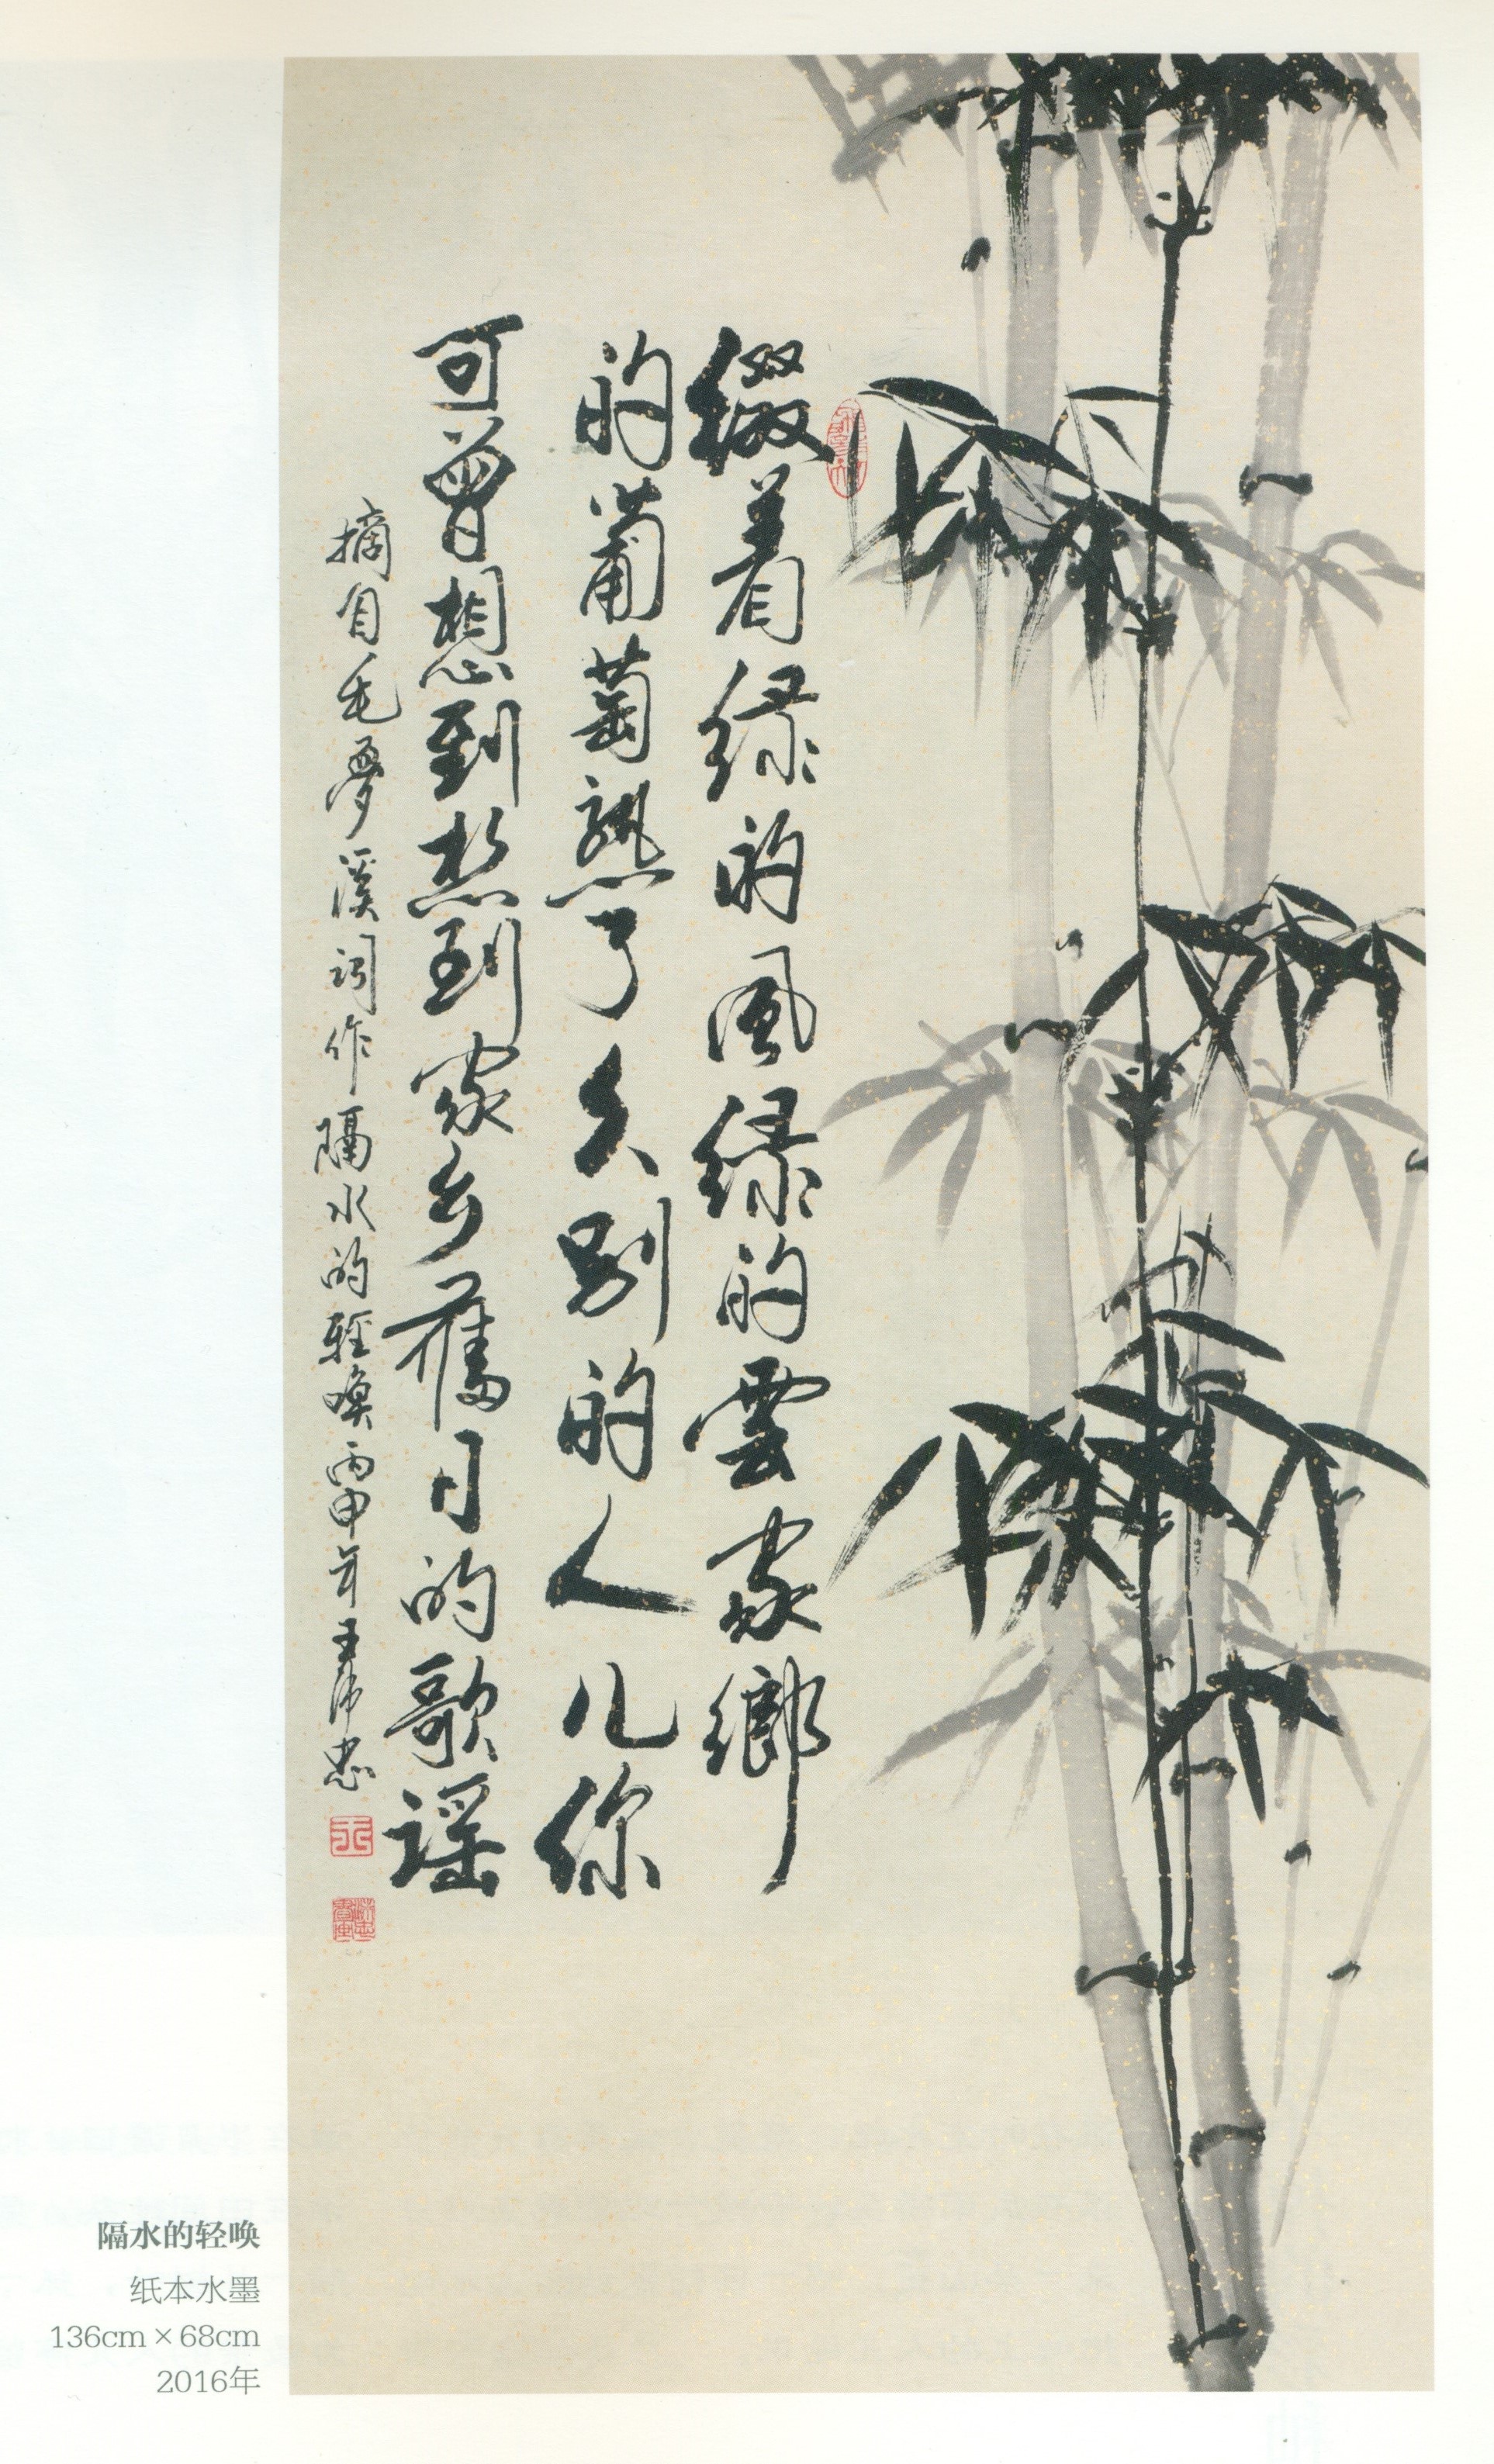 缀着绿的風绿的雲家鄉
的葡萄熟了久别的人儿你
可曾想到想到家乡舊日的歌谣
摘自毛夢溪词作隔水的輕喚丙申年王忠
隔水的轻唤
纸本水墨
136cm×68cm
2016年